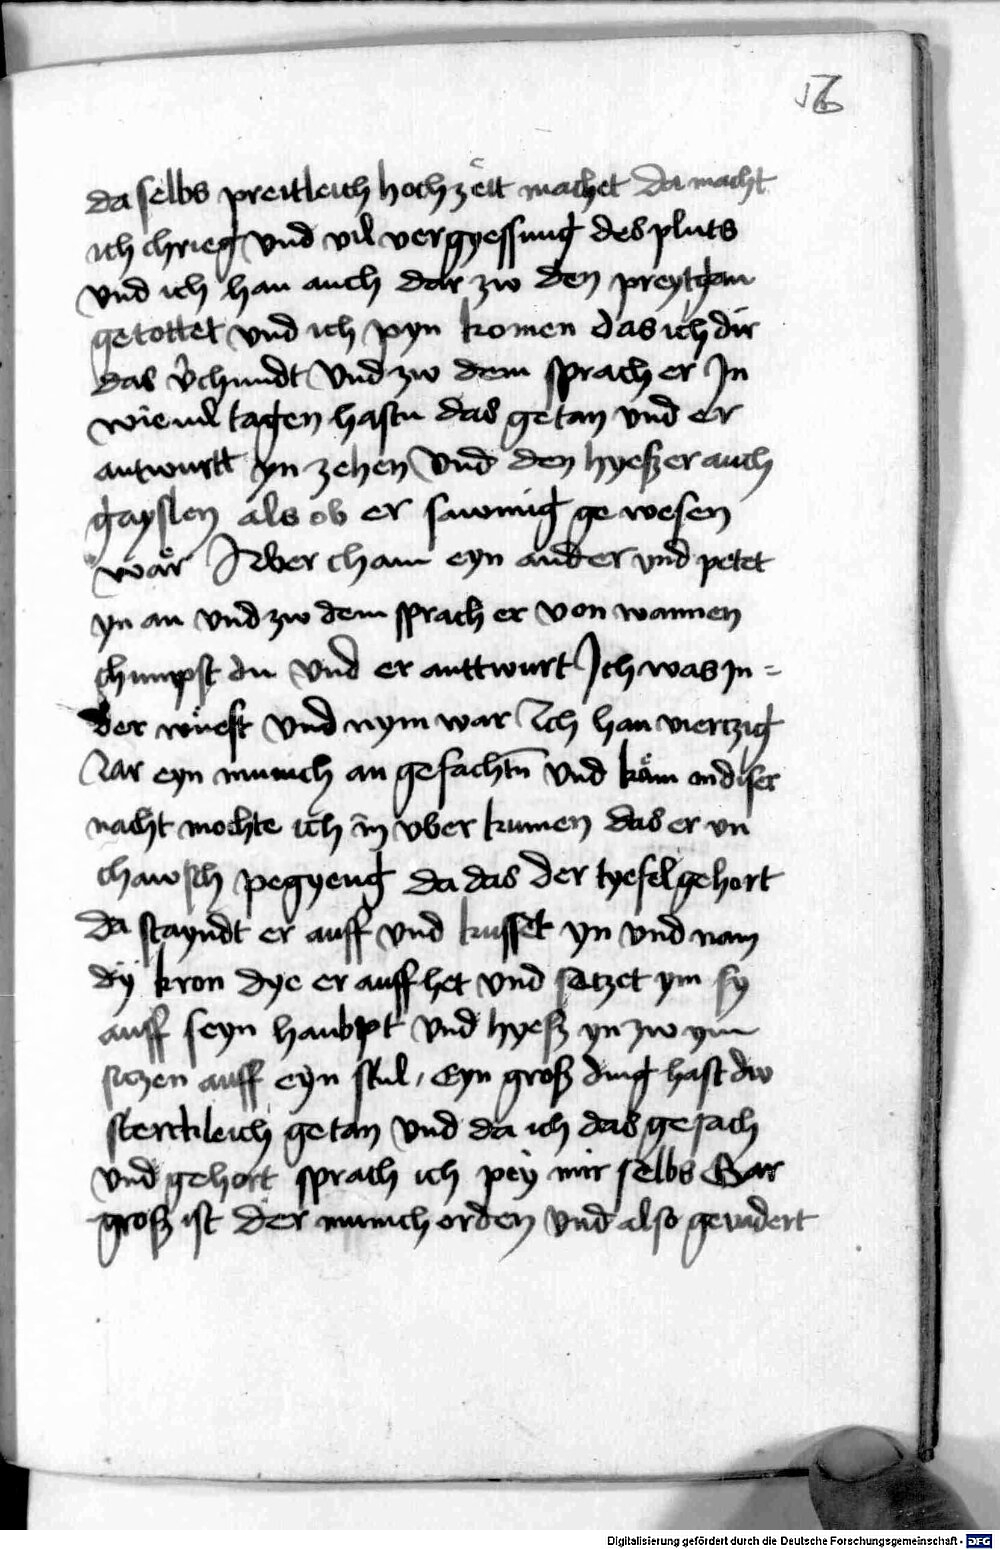 56
da selbs preitleich hochzeit machet Da macht
ich chrieg vnd vil vergyessung des pluts
vnd ich han auch dar zw den preytgan
getottet vnd ich pyn komen das ich dir
das v̉chundt Vnd zw dem sprach er In
wieuil tagen hastu das getan vnd er
antwurtt yn zehen Vnd den hyesz er auch
gayslen als ob er sawmig gewesen
wär Aber cham eyn ander vnd petet
yn an vnd zw dem sprach er von wannen
chumpst du Vnd er anttwurt Ich was In =
der wüest Vnd nym war Ich han viertzig
Iar eyn munich an gefachtn̄ Vnd käm an diser
nacht mochte ich in vber kumen das er vn
chawsch pegyeng da das der tyefel gehort
da stayndt er auff vnd kusset yn vnd nam
dÿ kron dye er auff het vnd satzet ym sy
auff seyn haubpt vnd hyesz yn zw ym
siczen auff eyn stul, Eyn grosz ding hast dw
sterckleich getan vnd da ich das gesach
vnd gehort sprach ich pey mir selbs Gar
grosz ist der munich orden vnd also
Digitalisierung gefördert durch die Deutsche Forschungsgemeinschaft - DFG